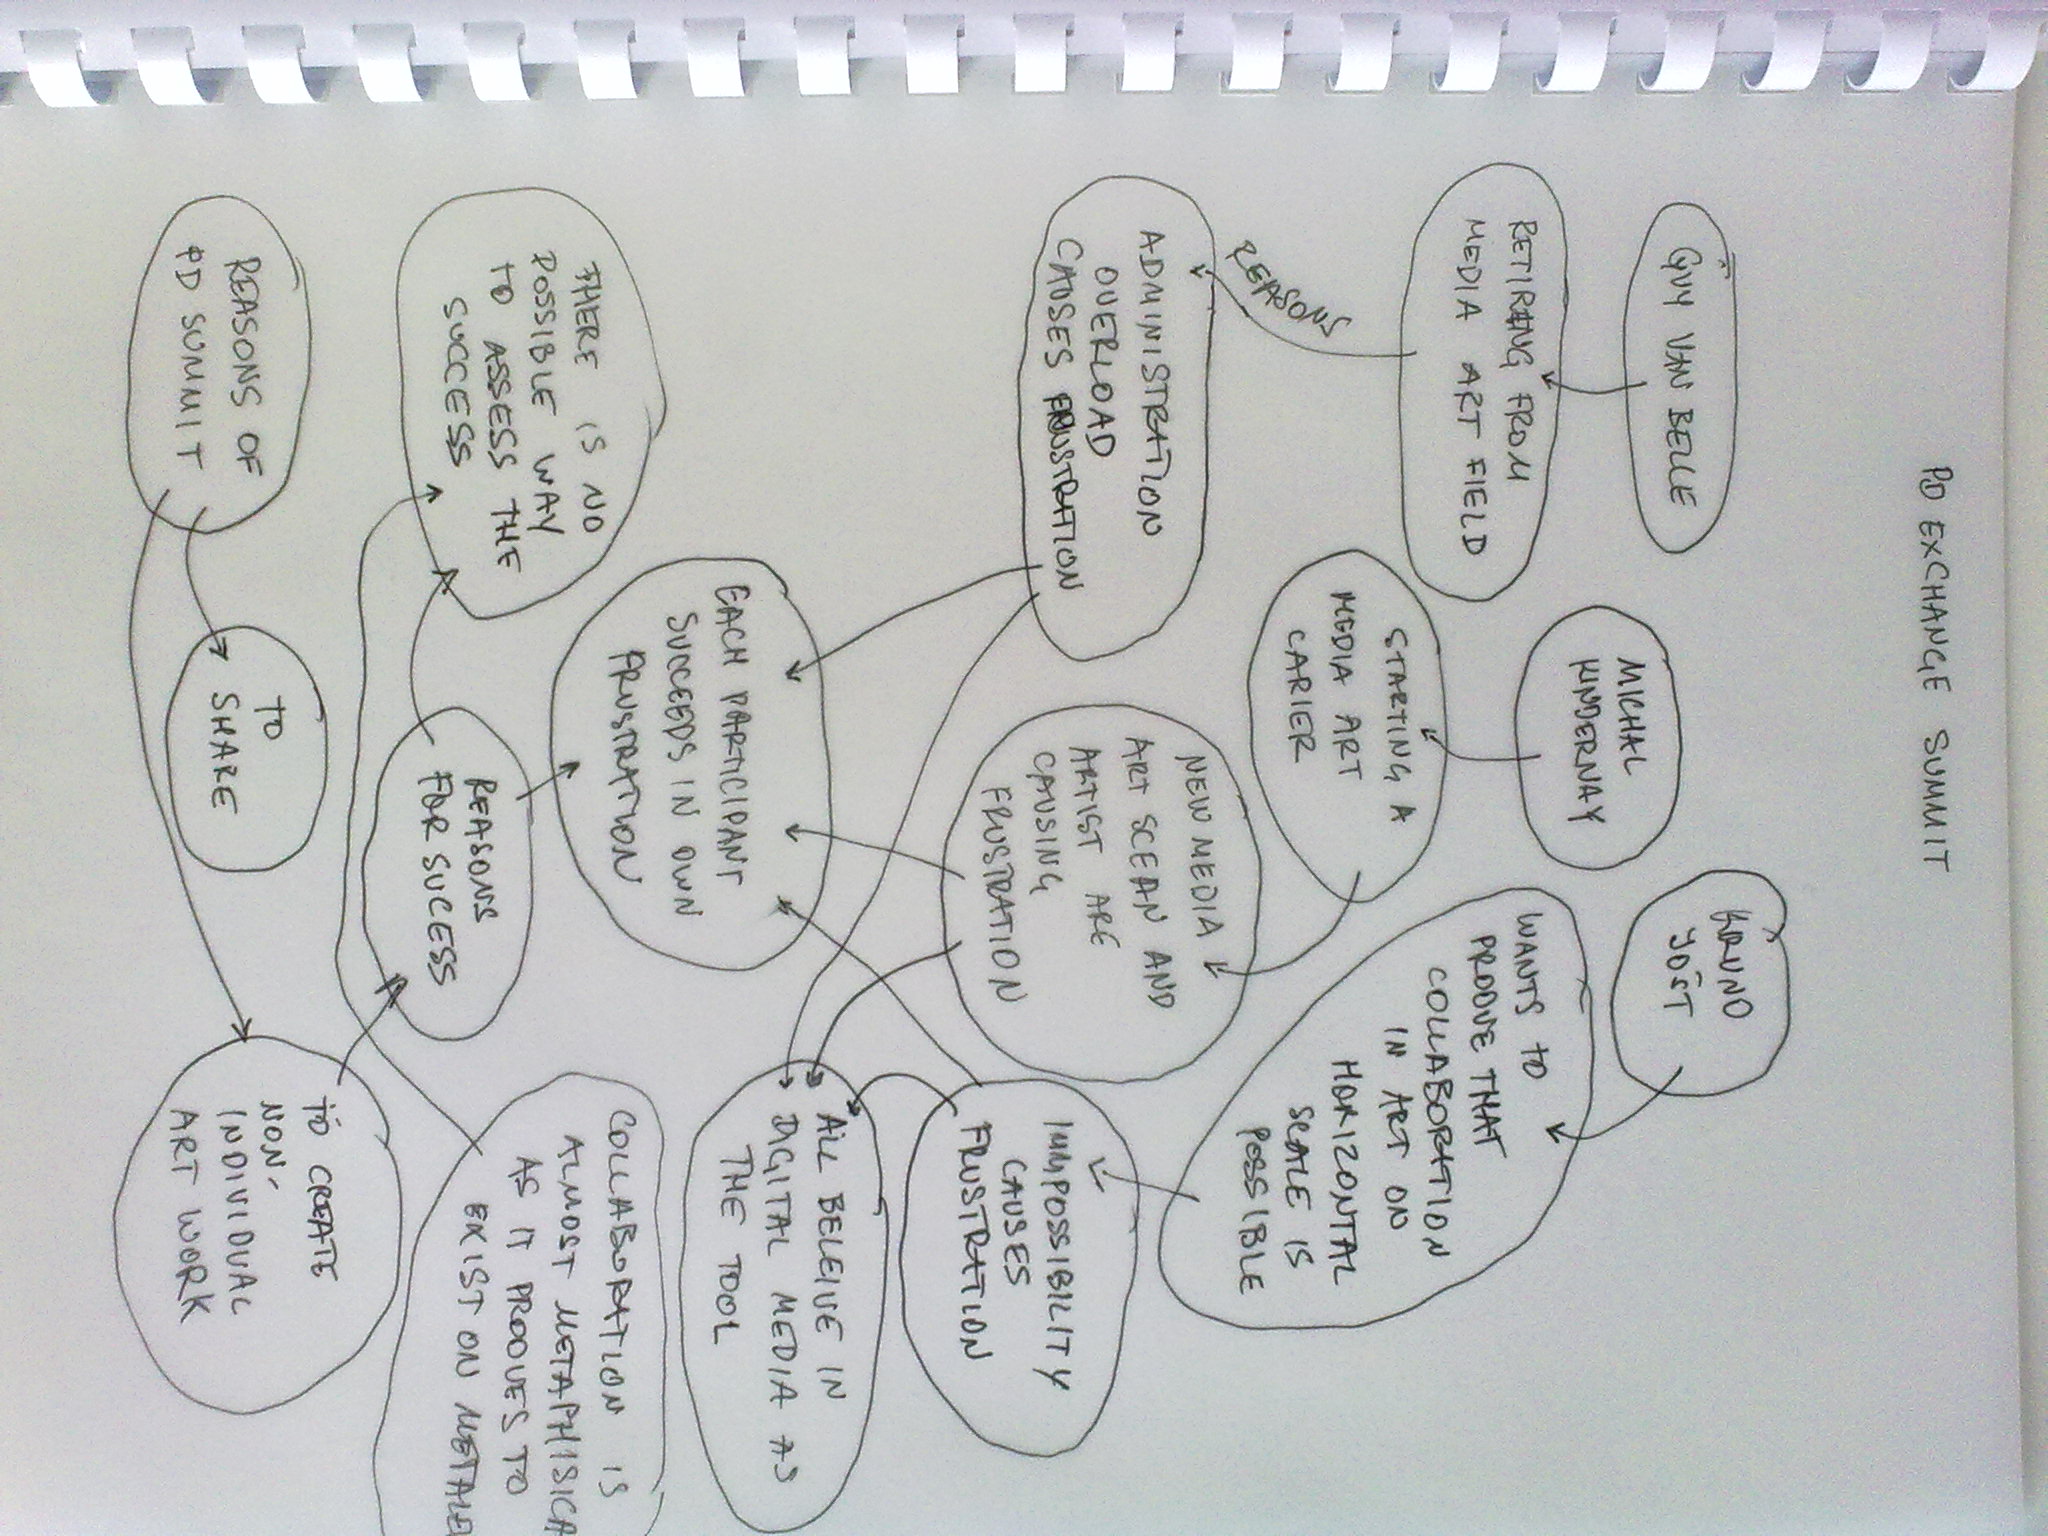 PD EXCHANGE SUMMIT
GUY VAN BELLE
MICHAL
KINDERNAY
YOST
RETIRING FROM
MEDIA ART FIELD
STARTING A
MEDIA ART
CARIER
WANTS TO
PROOVE THAT
COLLABORATION
IN ART ON
HORIZONTAL
SCALE IS
POSSIBLE
REASONS
ADMINISTRATION
OVERLOAD
CAUSES FRUSTRATION
NEW MEDIA
ART SCEAN AND
ARTIST ARE
CAUSING
FRUSTRATION
IMMPOSSIBILITY
CAUSES
FRUSTRATION
EACH PARTICIPANT
SUCCEEDS IN OWN
FRUSTRATION
ALL BELEIVE IN
DIGITAL MEDIA AS
THE TOOL
THERE IS NO
POSSIBLE WAY
TO ASSESS THE
SUCCESS
REASONS
FOR SUCCESS
COLLABORATION IS
ALMOST METAPHISICA
AS IT PROOVES TO
EXIST ON METALE
REASONS OF
PD SUMMIT
TO
SHARE
TO CREATE
NON-
INDIVIDUAL
ART WORK